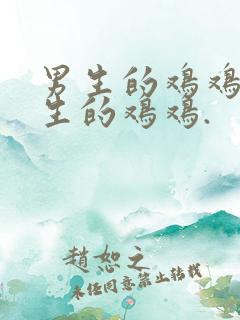 男生的鸡鸡
生的鸡鸡.
趙恕之
未经同意禁止转载